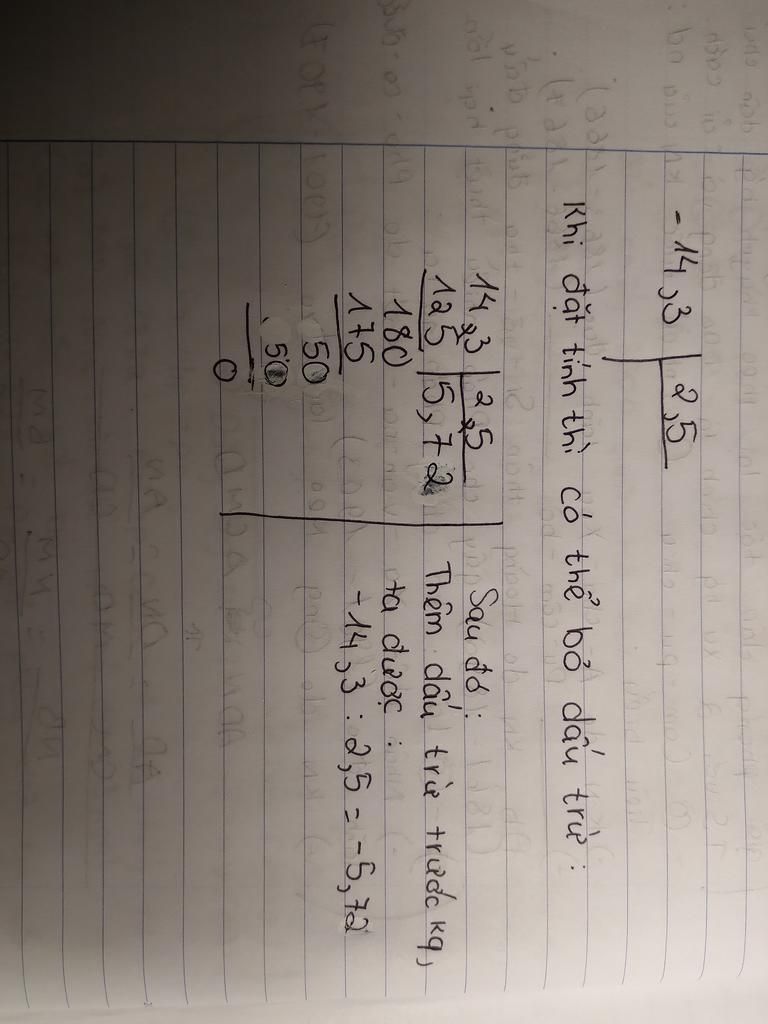 -14,3 | 2,5
Khi đặt tính thì có thể bỏ dấu trừ:
14,3 | 2,5
125 | 5,72
180
175
50
50
0
Sau đó:
Thêm dấu trừ trước kq,
ta được:
-14,3 : 2,5 = -5,72